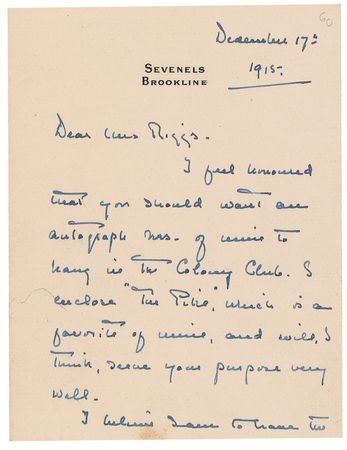 60
December 17th
1915.
SEVENELS
BROOKLINE
Dear Mrs Riggs.
I feel honoured
that you should want an
autograph Mss. of mine to
hang in the Colony Club. I
enclose "The Pike", which is a
favorite of mine, and will, I
think, serve your purpose very
well.
I believe I am to have the